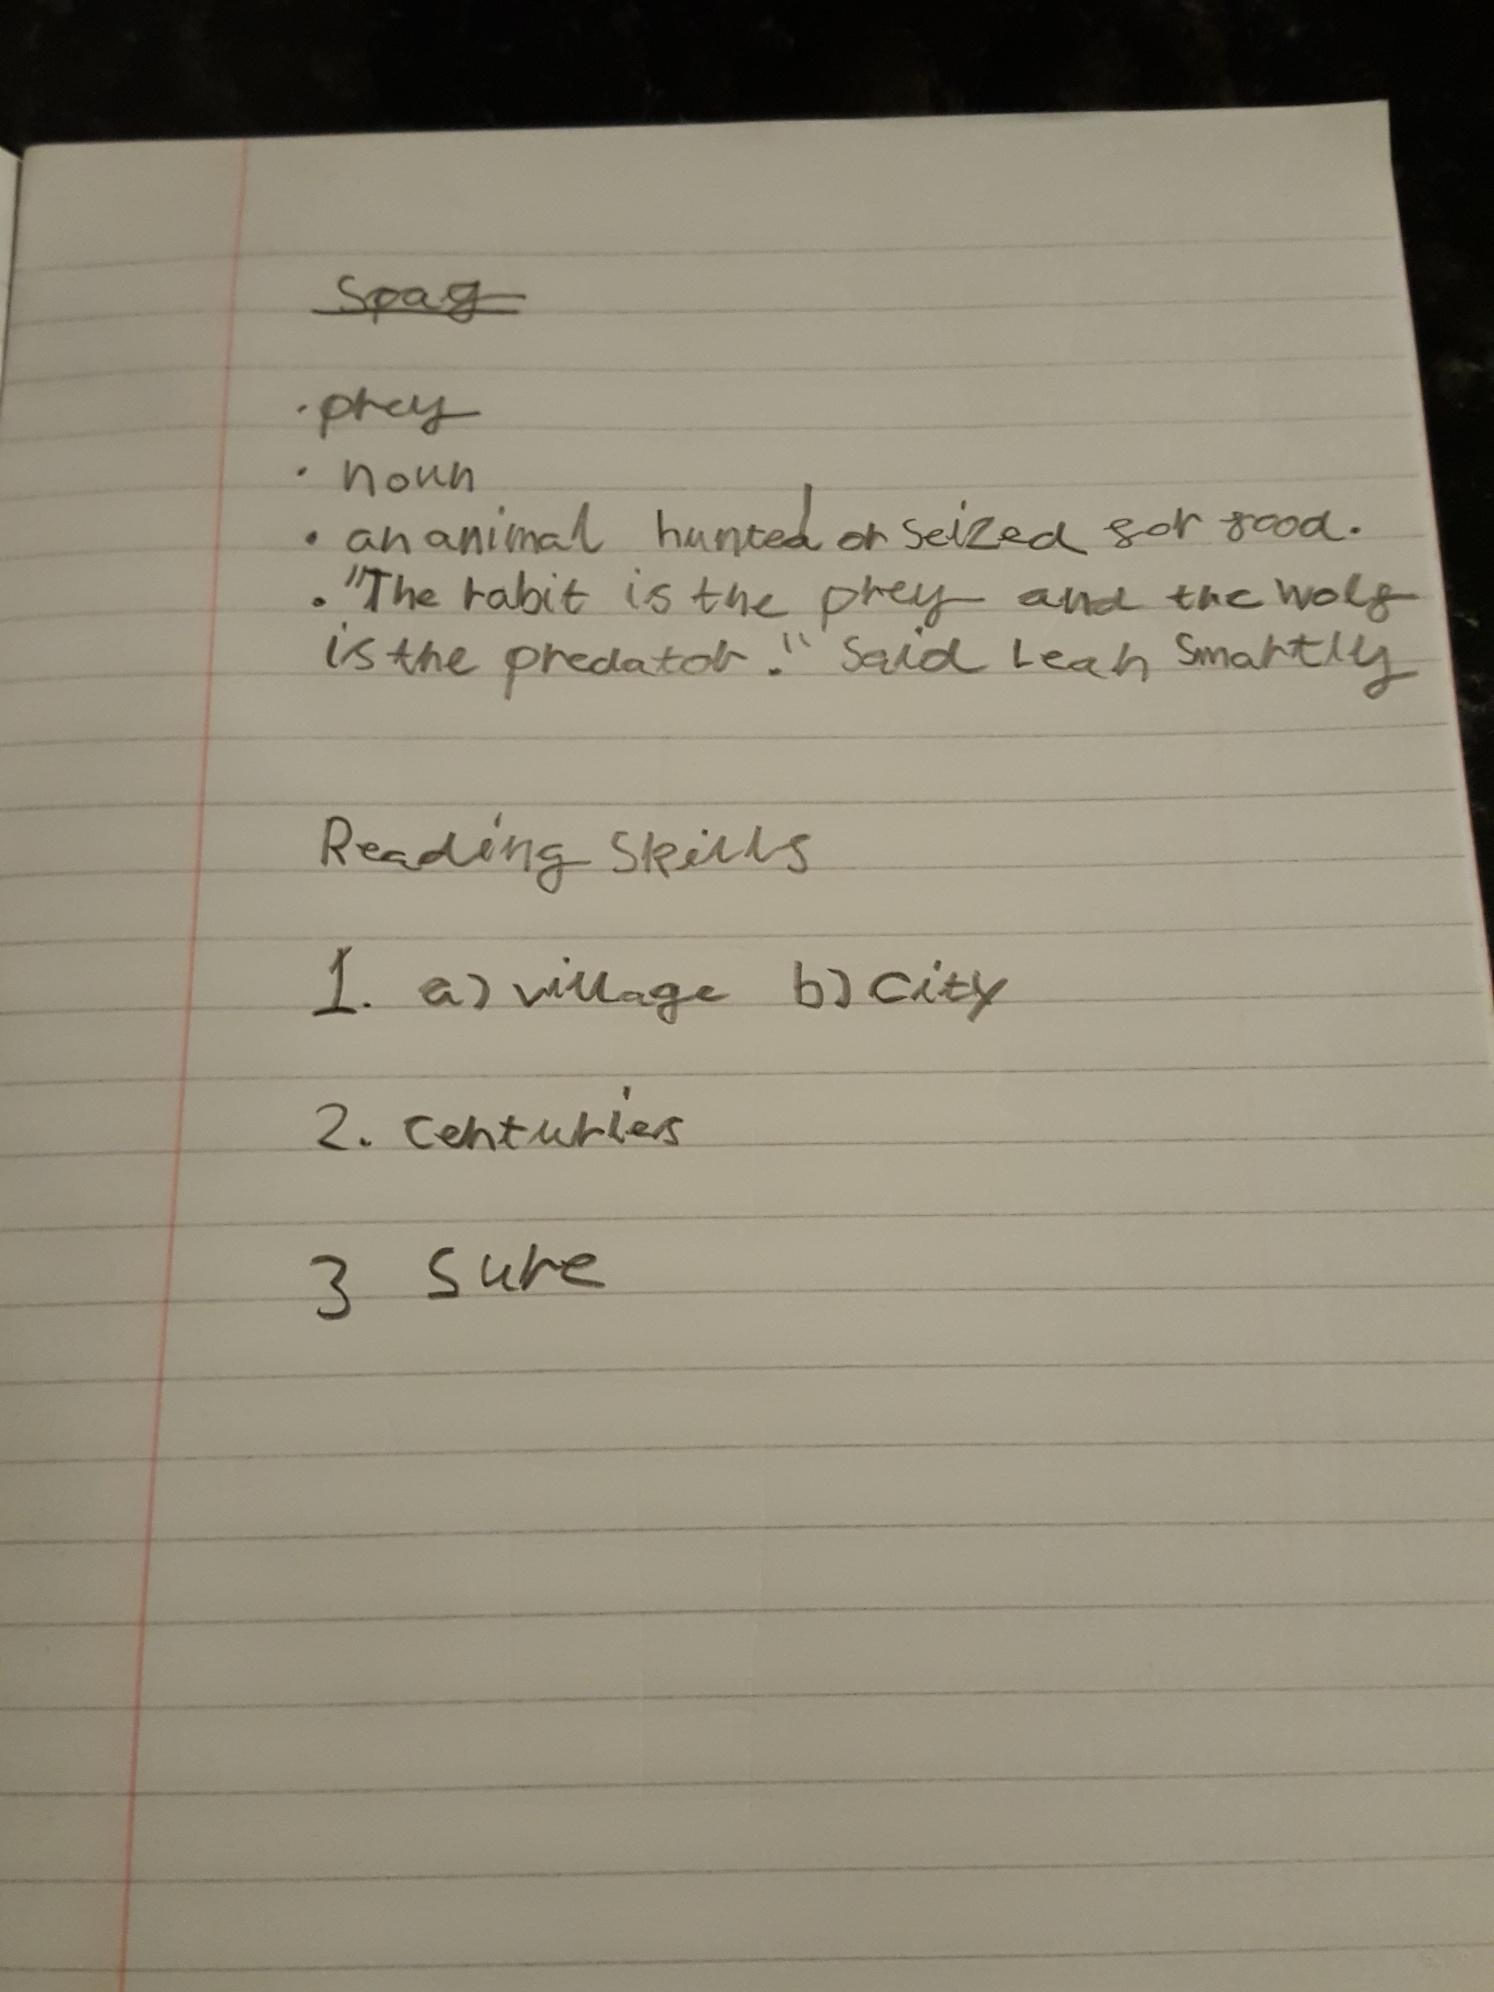 Spag
· prey
· noun
· an animal hunted or seized for food.
· "The rabit is the prey and the wolf
is the predator." Said Leah Smartly
Reading Skills
1. a) village b) city
2. centuries
3 sure